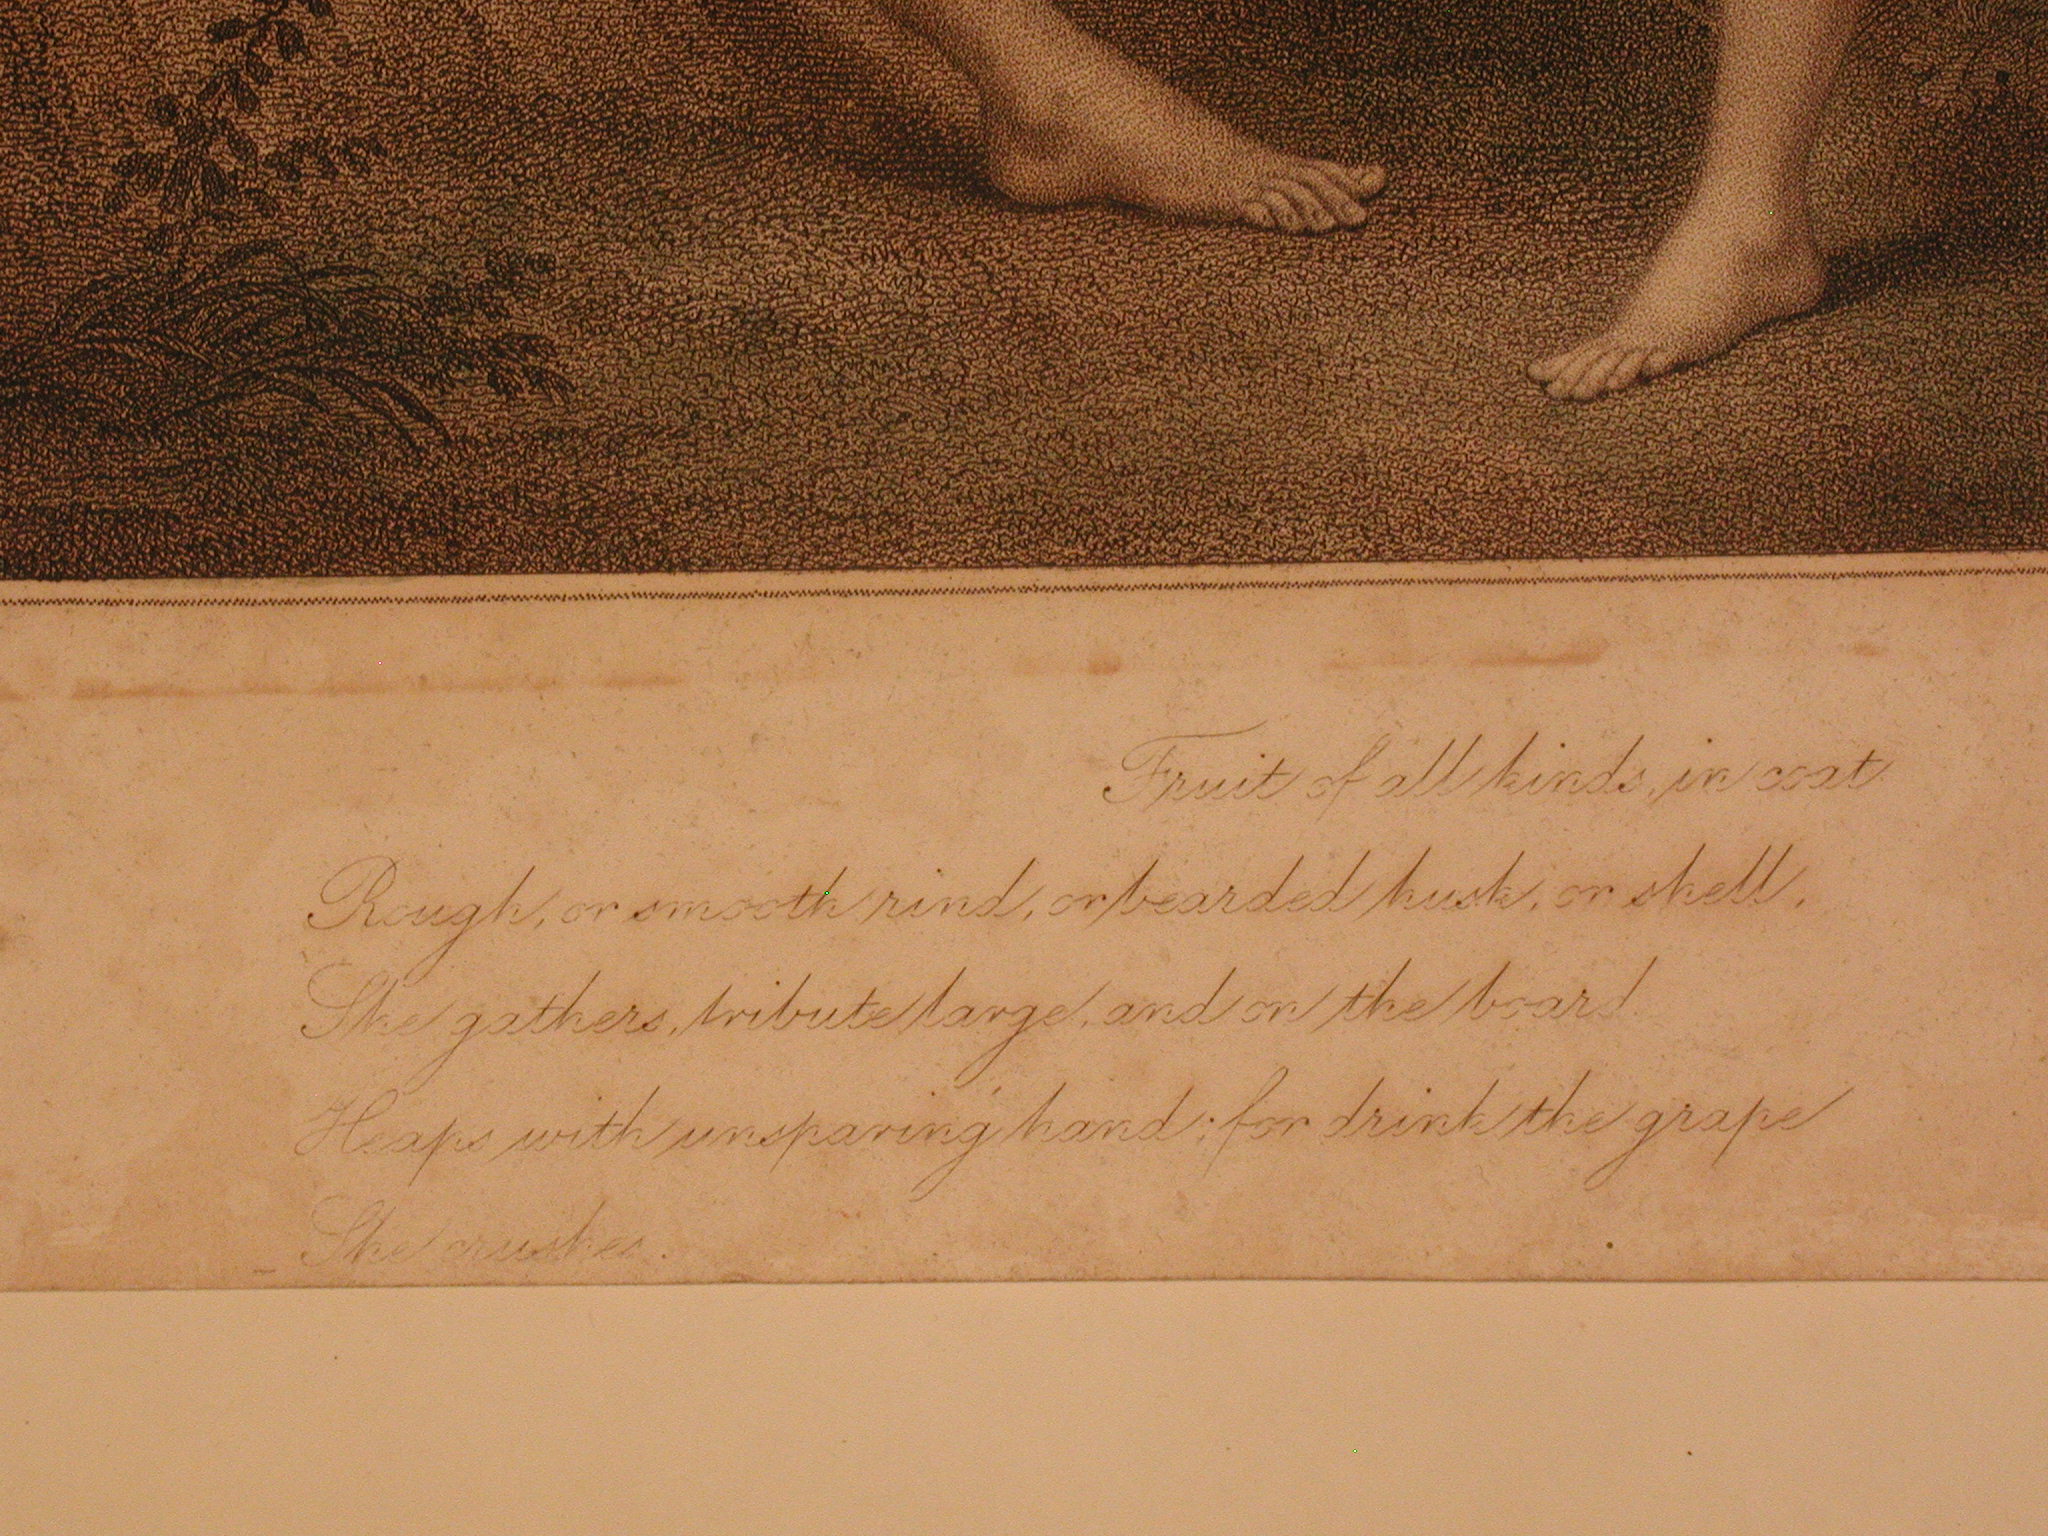 Fruit of all kinds, in coat
Rough, or smooth rind, or bearded husk, or shell,
She gathers, tribute large, and on the board
Heaps with unsparing hand; for drink the grape
She crushes.